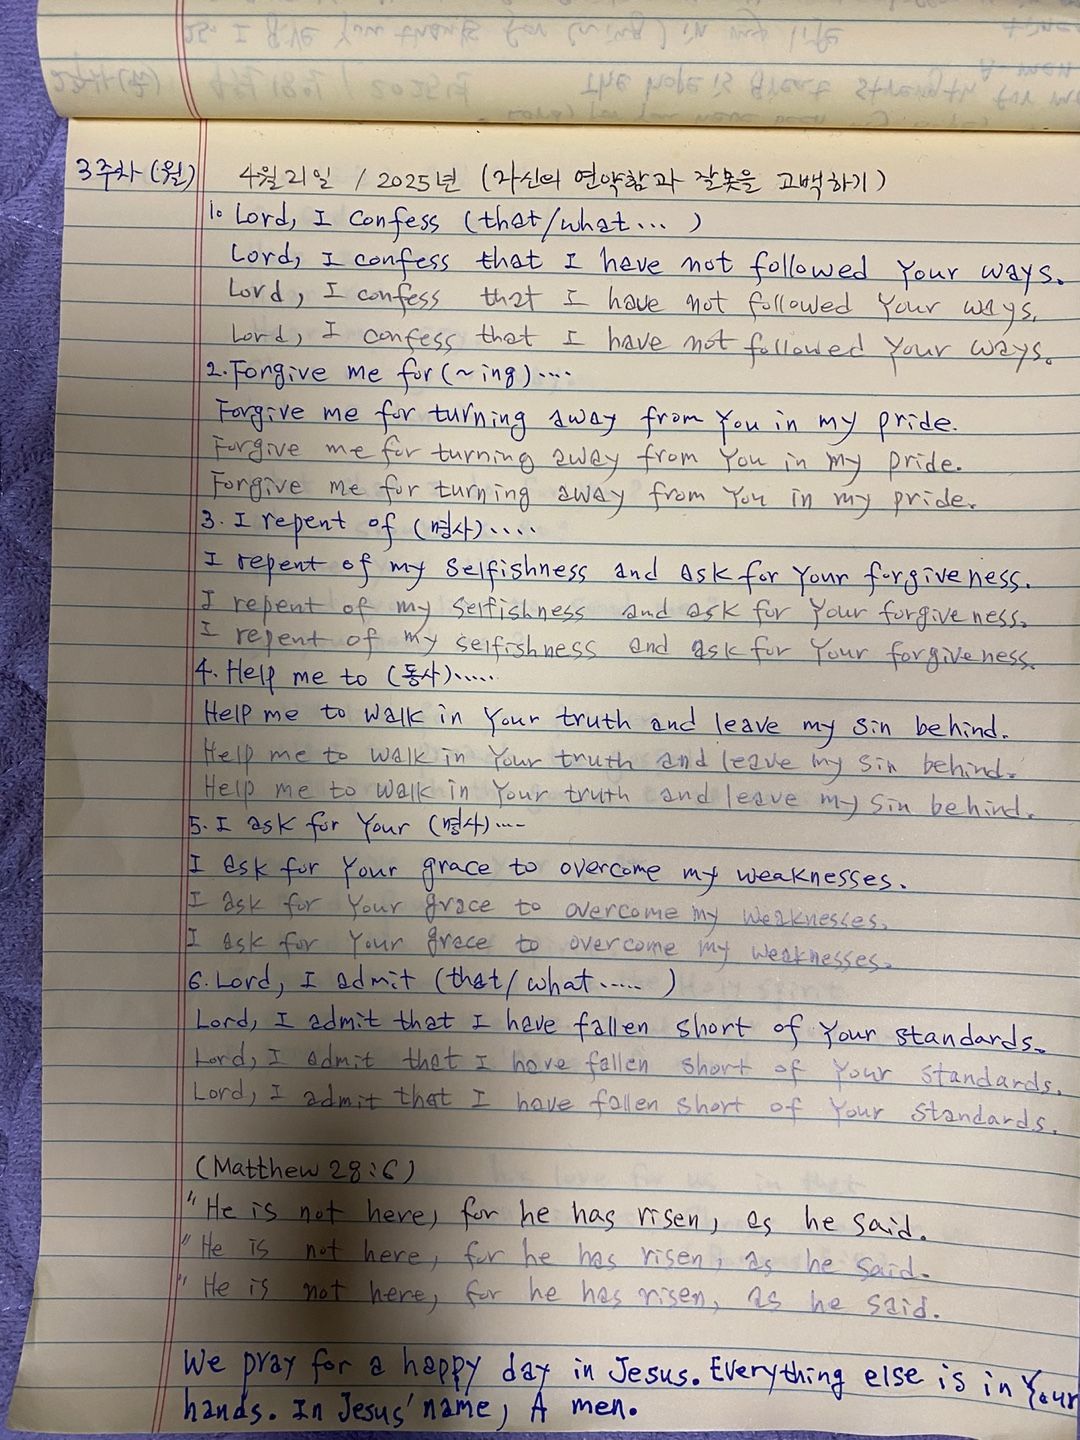 3주차(월) 4월 21일 / 2025년 (자신의 연약함과 잘못을 고백하기)
1. Lord, I confess (that/what... )
Lord, I confess that I have not followed Your ways.
Lord, I confess that I have not followed Your ways.
Lord, I confess that I have not followed Your ways.
2. Forgive me for (~ing)....
Forgive me for turning away from You in my pride.
Forgive me for turning away from You in my pride.
Forgive me for turning away from You in my pride.
3. I repent of (명사)....
I repent of my selfishness and ask for Your forgiveness.
I repent of my selfishness and ask for Your forgiveness.
I repent of my selfishness and ask for Your forgiveness.
4. Help me to (동사).....
Help me to walk in Your truth and leave my sin behind.
Help me to walk in Your truth and leave my sin behind.
Help me to walk in Your truth and leave my sin behind.
5. I ask for Your (명사)....
I ask for Your grace to overcome my weaknesses.
I ask for Your grace to overcome my weaknesses.
I ask for Your grace to overcome my weaknesses.
6. Lord, I admit (that/what..... )
Lord, I admit that I have fallen short of Your standards.
Lord, I admit that I have fallen short of Your standards.
Lord, I admit that I have fallen short of Your standards.
(Matthew 28:6)
"He is not here, for he has risen, as he said.
"He is not here, for he has risen, as he said.
"He is not here, for he has risen, as he said.
We pray for a happy day in Jesus. Everything else is in Your
hands. In Jesus' name, A men.